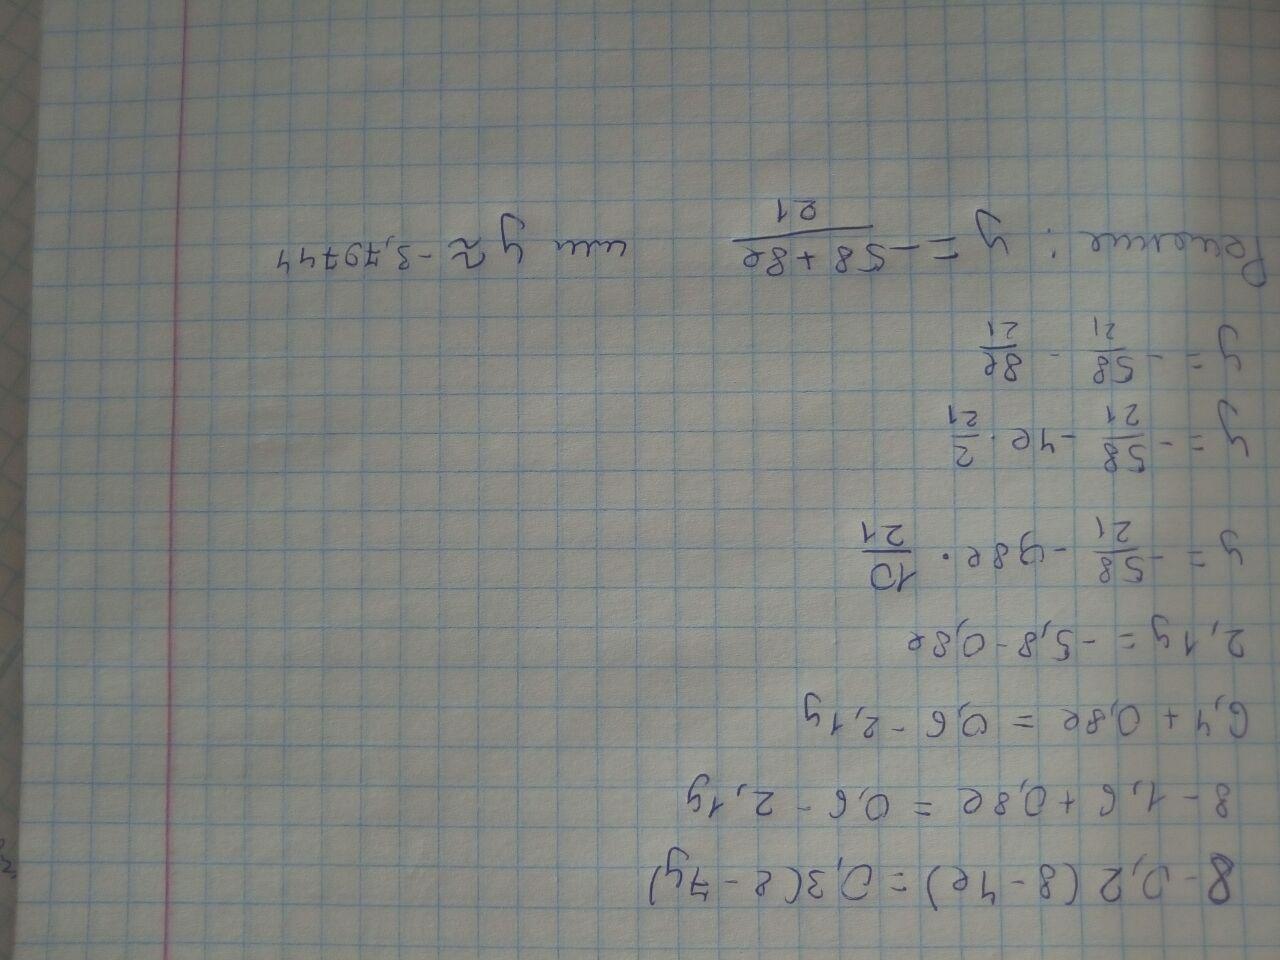 8 - 0,2 (8 - 4e) = 0,3(2 - 7y)
8 - 1,6 + 0,8e = 0,6 - 2,1y
6,4 + 0,8e = 0,6 - 2,1y
2,1y = -5,8 - 0,8e
y = - 58/21 - 98e · 10/21
y = - 58/21 - 4e · 2/21
y = - 58/21 - 8e/21
Решение : y = - 58 + 8e/21 или y ≈ -3,79744